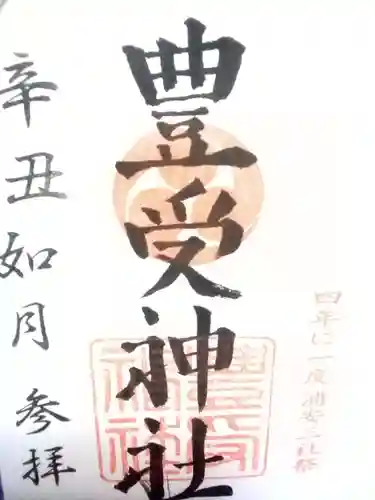 四年に一度浦安三社祭
豊受神社
辛丑如月参拝
豊受神社